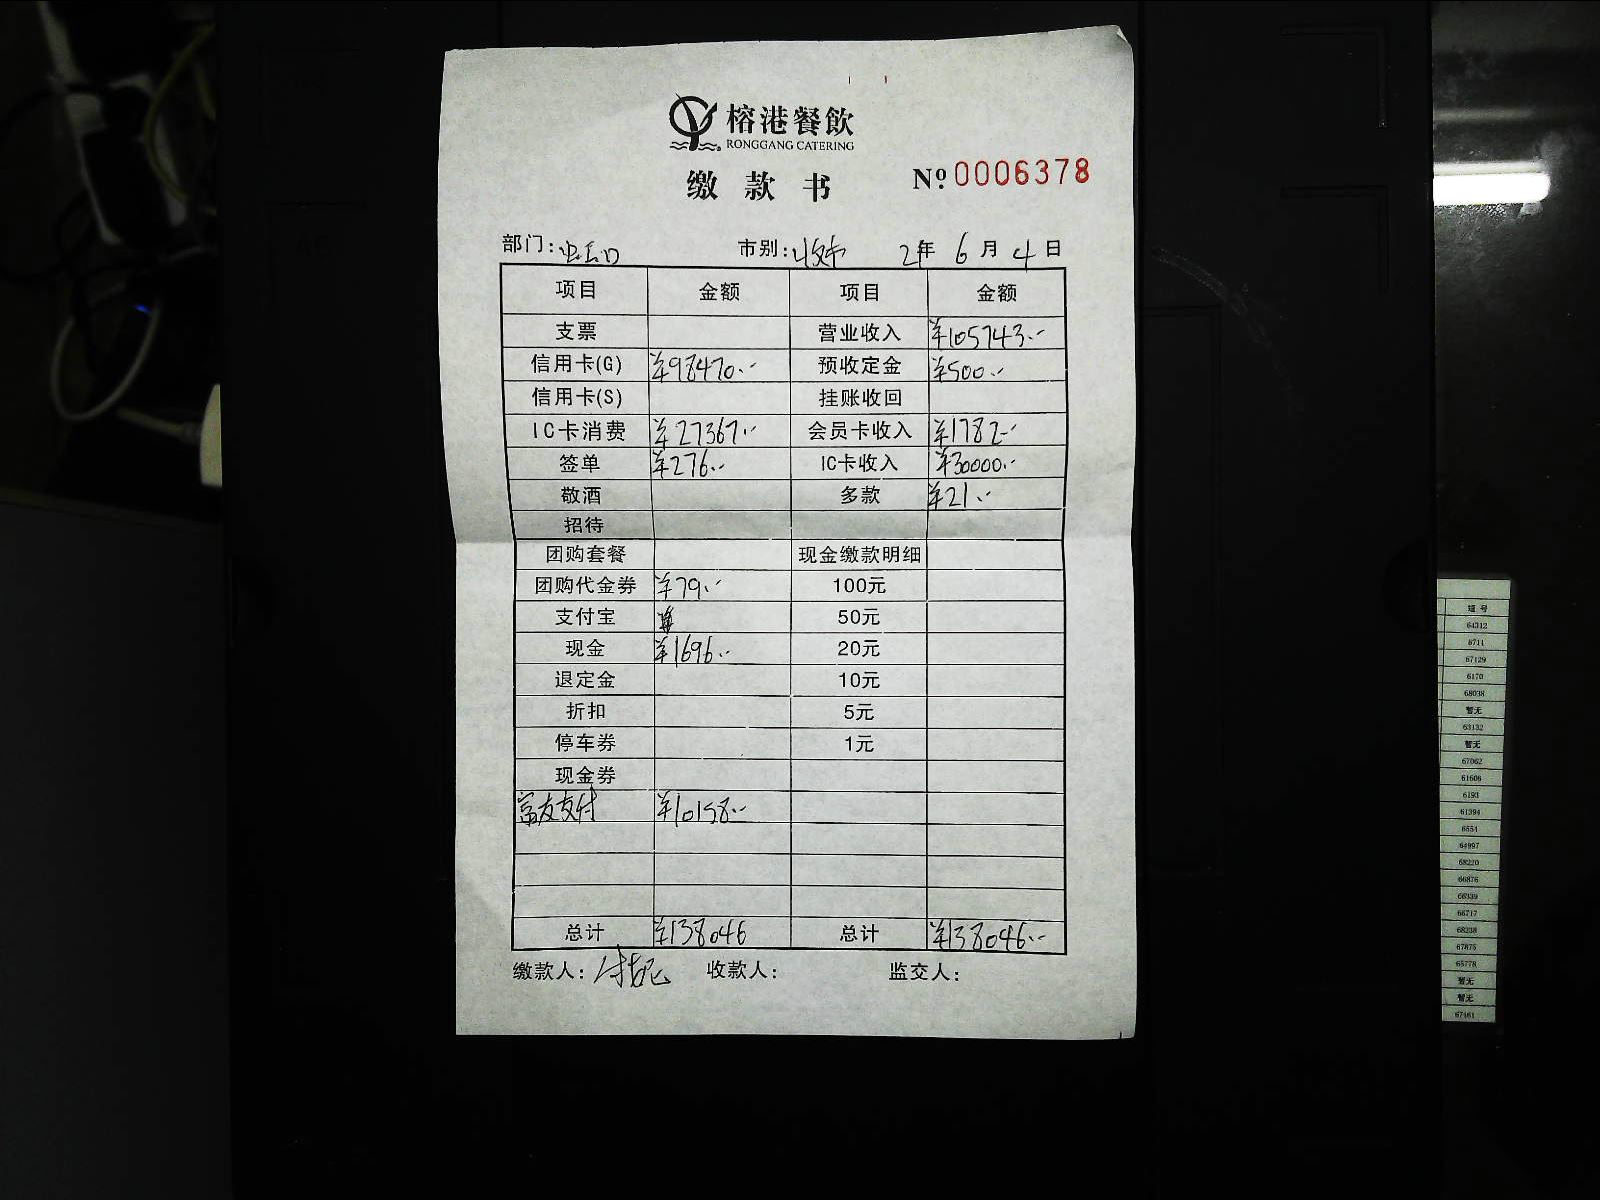 榕港餐飲
RONGGANG CATERING
缴款书 № 0006378
部门: 市别:收市 21年 6月 4日
项目 金额 项目 金额
支票 营业收入 ¥105743.-
信用卡(G) ¥98470.- 预收定金 ¥500.-
信用卡(S) 挂账收回
IC卡消费 ¥27367.- 会员卡收入 ¥1782.-
签单 ¥276.- IC卡收入 ¥30000.-
敬酒 多款 ¥21.-
招待
团购套餐 现金缴款明细
团购代金券 ¥79.- 100元
支付宝 50元
现金 ¥1696.- 20元
退定金 10元
折扣 5元
停车券 1元
现金券
富友支付 ¥10158.-
总计 ¥138046 总计 ¥138046.-
缴款人: 收款人: 监交人:
短号
64312
6711
67129
6170
68038
暂无
63132
暂无
67062
61606
6193
61394
6551
64997
68220
66876
66339
66717
68238
67875
65778
暂无
暂无
67461